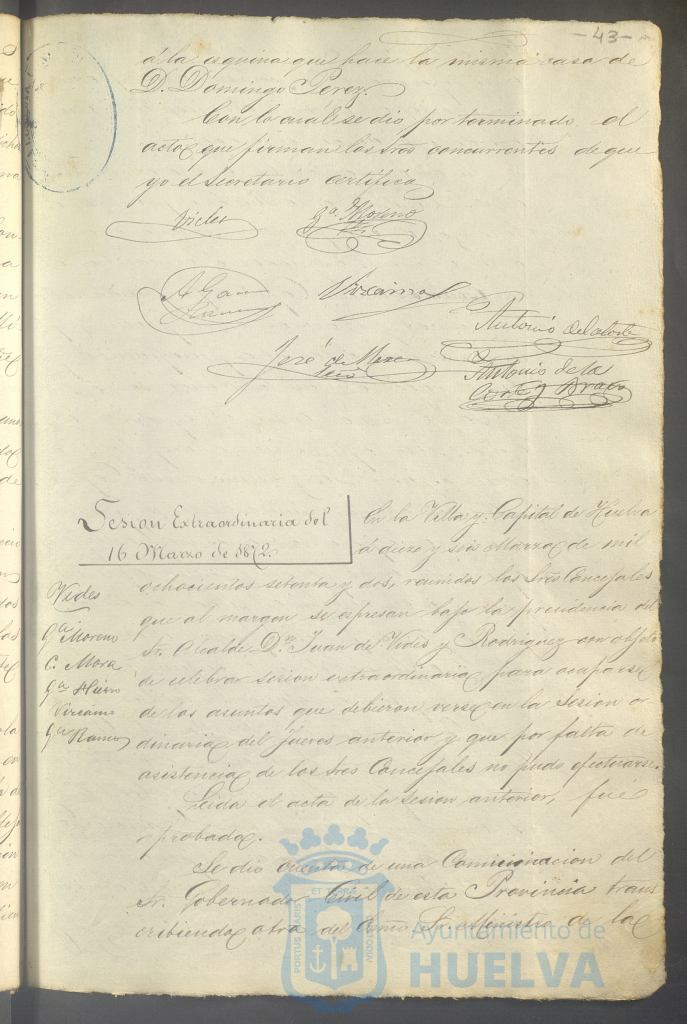 -43-
á la esquina que hace la misma casa de
D. Domingo Perez.
Con lo cual se dio por terminado el
acto que firman los Sres concurrentes de que
yo el Secretario certifica
Vides Gª Moreno
Vizcaino
Antonio de la Corte
José de Mora
Antonio de la
Corte y Bravo
Sesion Extraordinaria del
16 Marzo de 1872.
En la Villa y Capital de Huelva
á diez y seis Marzo de mil
ochocientos setenta y dos, reunidos los Sres Concejales
que al margen se espresan bajo la presidencia del
Sr. Alcalde Dn. Juan de Vides y Rodriguez con objeto
de celebrar sesion extraordinaria para ocuparse
de los asuntos que debieron verse en la Sesion or
dinaria del jueves anterior y que por falta de
asistencia de los Sres Concejales no pudo efectuarse.
Vides
Gª Moreno
C. Mora
Gª Hierro
Vizcaino
Gª Ramos
Leida el acta de la sesion anterior, fué
aprobada.
Se dio cuenta de una Comunicacion del
Sr. Gobernador Civil de esta Provincia trans
cribiendo otra del Exmo Sr. Ministro de la
PORTUS MARIS ET TERRAE CUSTODIA
Ayuntamiento de
HUELVA